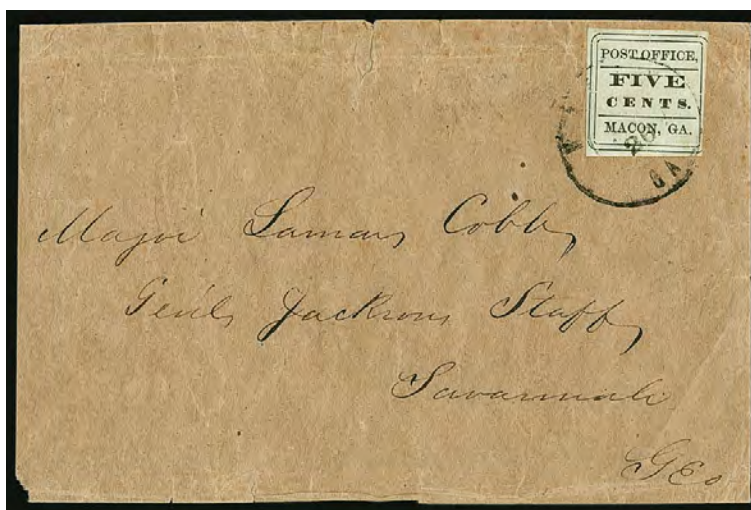 POST OFFICE,
FIVE
CENTS.
MACON, GA.
26
GA
Major Lamar Cobb,
Genl, Jacksons Staff,
Savannah
Geo